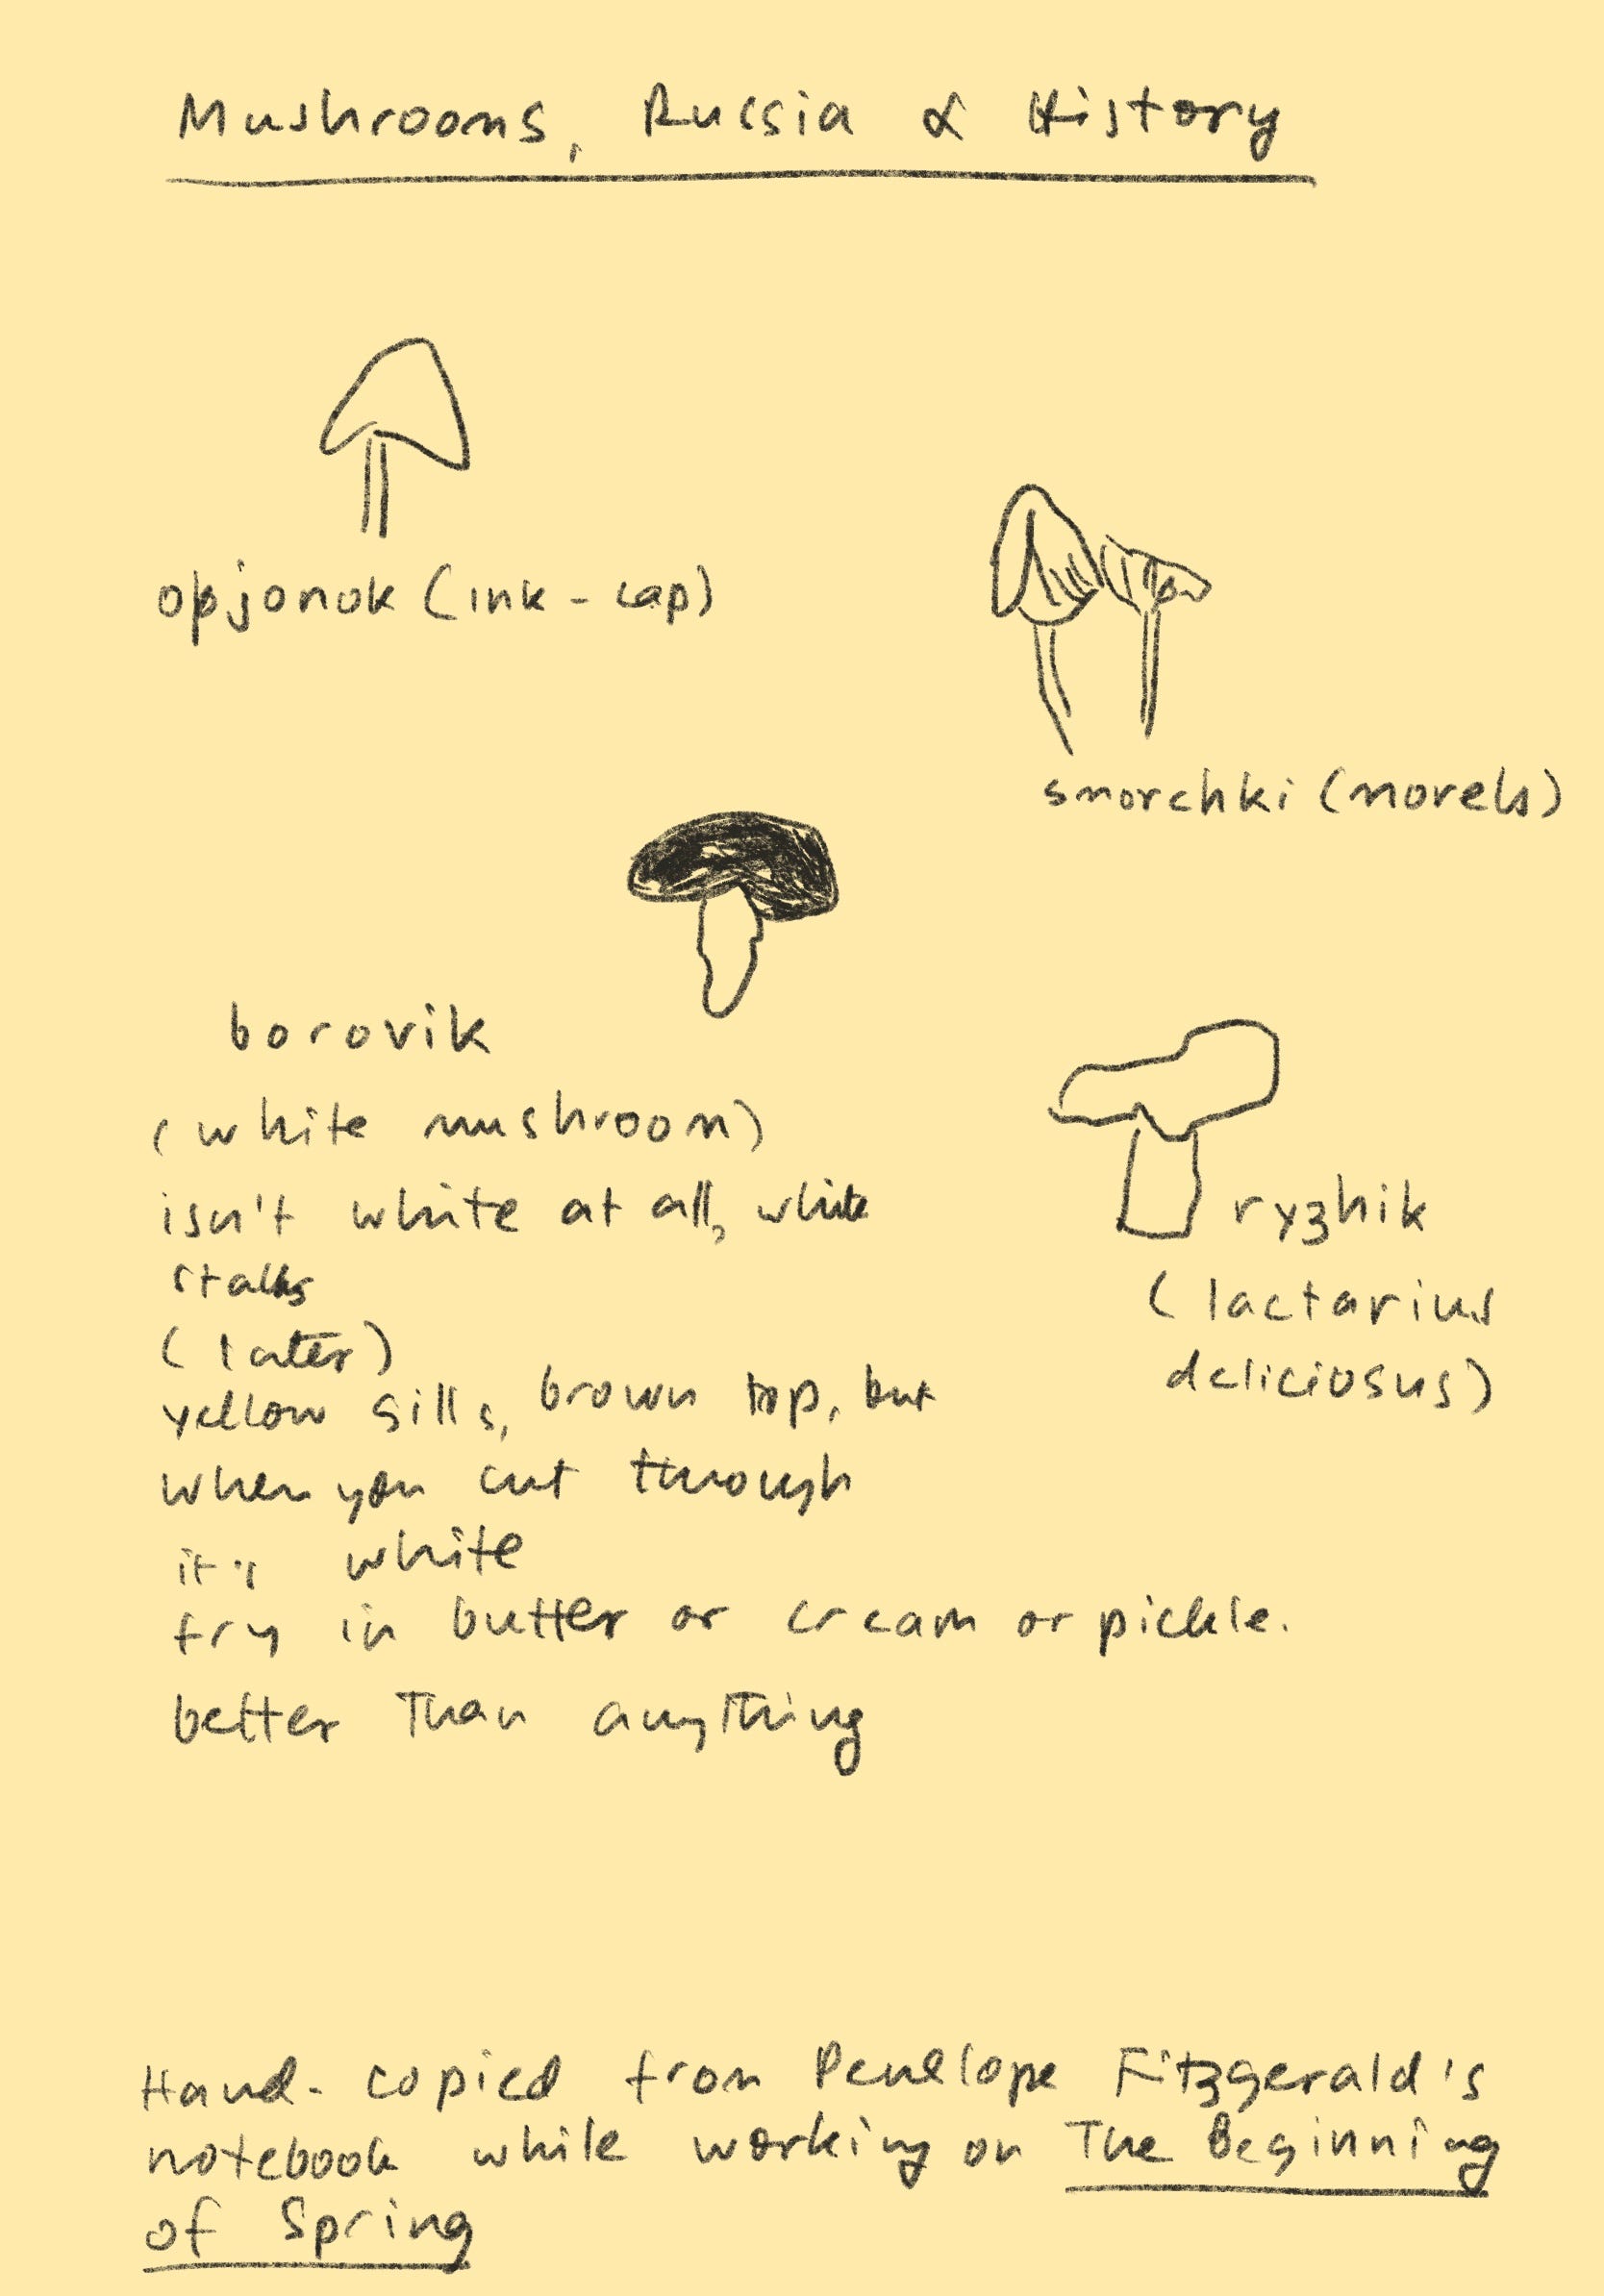 Mushrooms, Russia & History
opjonok (ink-cap)
smorchki (morels)
borovik
(white mushroom)
isn't white at all, white
stalks
(later)
yellow gills, brown top, but
when you cut through
it's white
fry in butter or cream or pickle.
better than anything
ryzhik
(lactarius
deliciosus)
Hand-copied from Penelope Fitzgerald's
notebook while working on The Beginning
of Spring